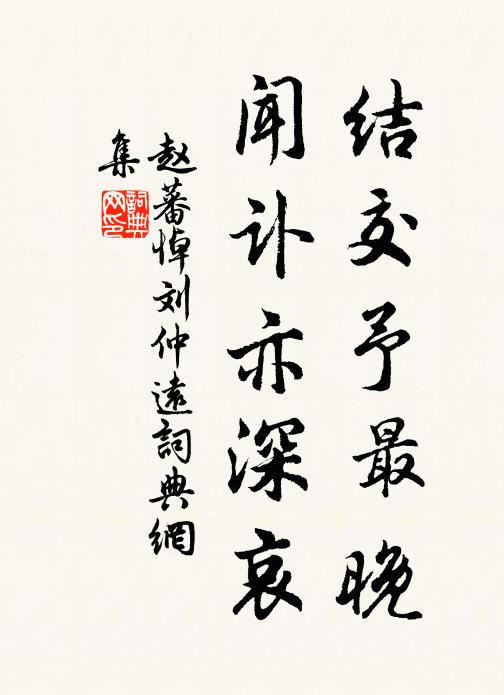 结交予最晚
闻讣亦深哀
赵蕃悼刘仲遠詞典網
集
詞典
网印